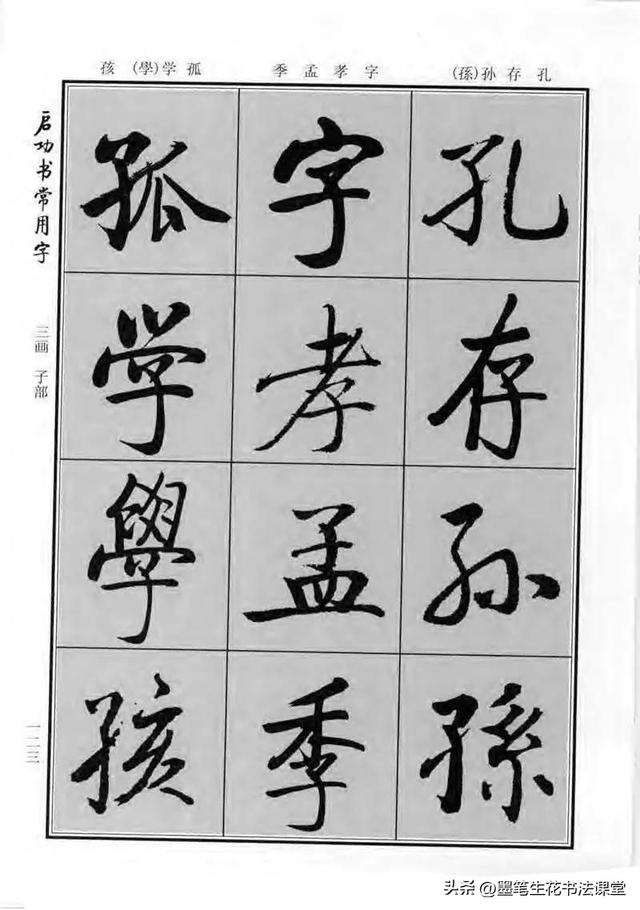 孩 (學)学 孤
季 孟 孝 字
(孫)孙 存 孔
启功书常用字
三画 子部
一二三
孔
存
孙
孫
字
孝
孟
季
孤
学
學
孩
头条 @墨笔生花书法课堂